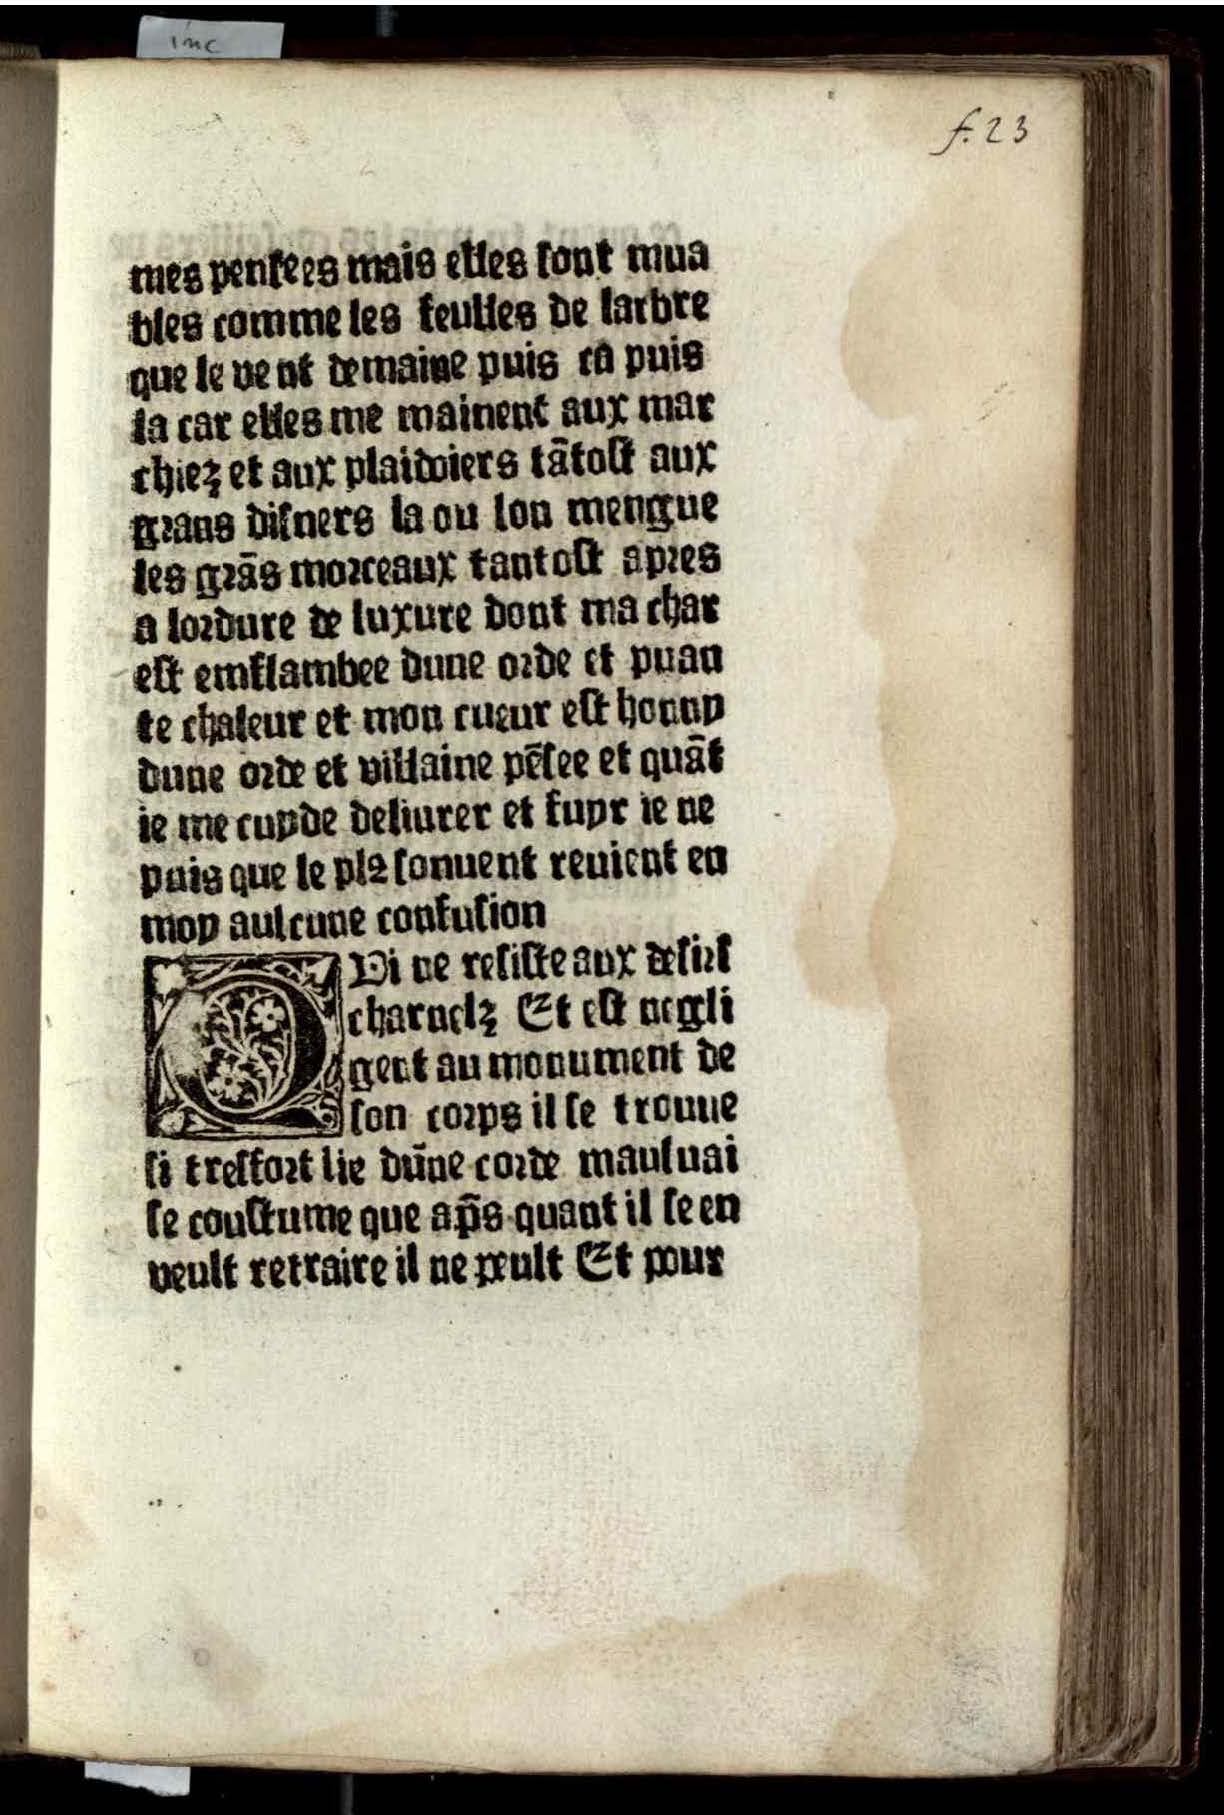 inc
f. 23
mes pensees mais elles sont mua
bles comme les feulles de larbre
que le vent demaine puis ca puis
la car elles me mainent aux mar
chiez et aux plaidoiers tãtost aux
grans disners la ou lon mengue
les grãs morceaux tantost apres
a lordure de luxure dont ma char
est emflambee dune orde et puan
te chaleur et mon cueur est honny
dune orde et villaine pẽsee et quãt
ie me cuyde deliurer et fuyr ie ne
puis que le plꝰ souuent reuient en
moy aulcune confusion
QVi ne resiste aux desirs
charnelz Et est negli
gent au monument de
son corps il se trouue
si tresfort lie dũne corde mauluai
se coustume que ap̃s quant il se en
veult retraire il ne peult Et pour